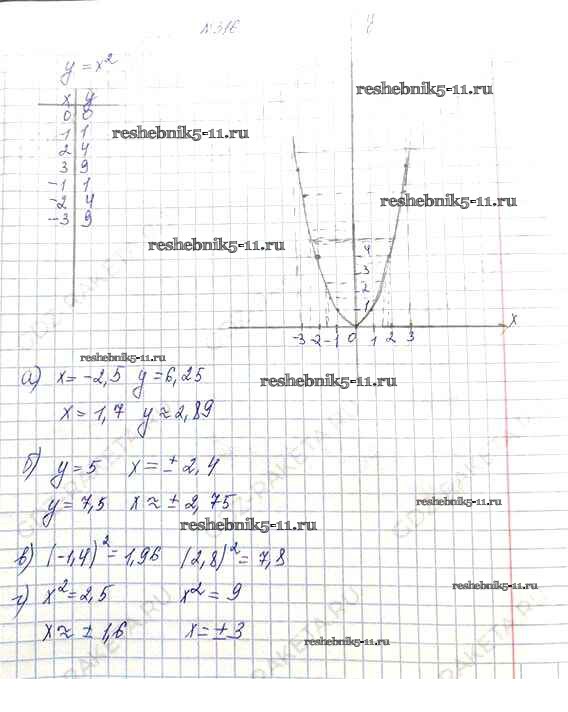 №316
y
y = x²
x y
0 0
1 1
2 4
3 9
-1 1
-2 4
-3 9
reshebnik5-11.ru
reshebnik5-11.ru
reshebnik5-11.ru
reshebnik5-11.ru
4
3
2
1
-3 -2 -1 0 1 2 3
x
reshebnik5-11.ru
reshebnik5-11.ru
а) x = -2,5 y = 6,25
x = 1,7 y ≈ 2,89
б) y = 5 x = ± 2,4
y = 7,5 x ≈ ± 2,75
reshebnik5-11.ru
reshebnik5-11.ru
GDZ-RAKETA.RU
в) (-1,4)² = 1,96 (2,8)² = 7,8
reshebnik5-11.ru
г) x² = 2,5 x² = 9
x ≈ ± 1,6 x = ± 3
reshebnik5-11.ru